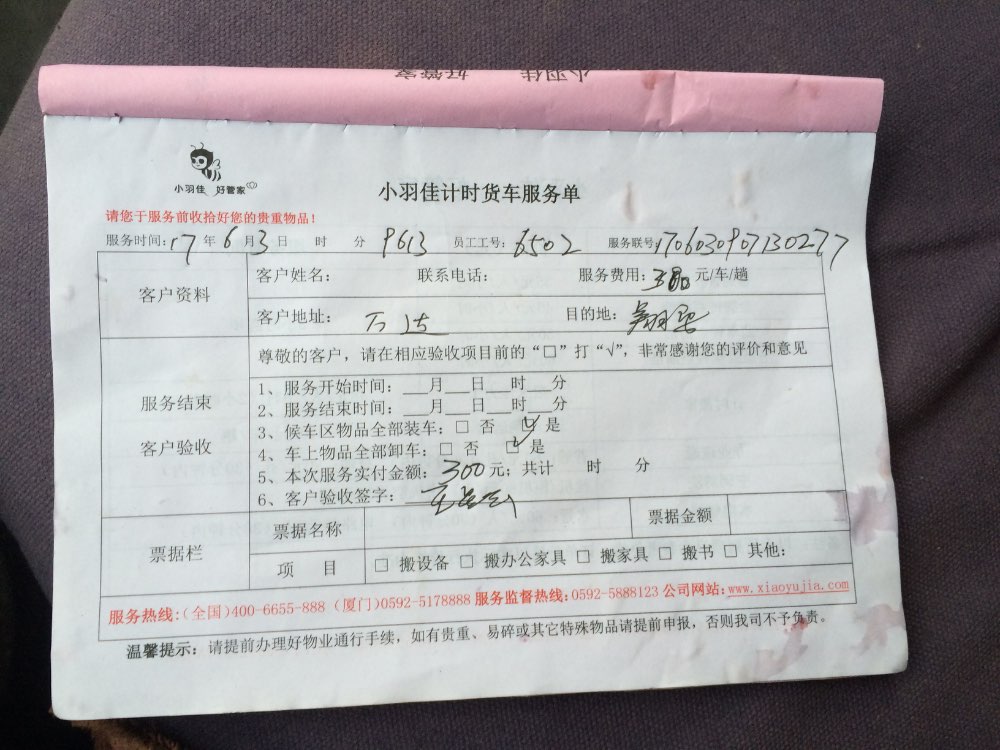 小羽佳 好管家
小羽佳 好管家
小羽佳计时货车服务单
请您于服务前收拾好您的贵重物品！
服务时间：17年6月3日 时 分 9613 员工工号：6502 服务联号：170603907130277
客户资料
客户姓名： 联系电话： 服务费用：380元/车/趟
客户地址：万达 目的地：翔鹭
服务结束
客户验收
尊敬的客户，请在相应验收项目前的“□”打“√”，非常感谢您的评价和意见
1、服务开始时间：___月___日___时___分
2、服务结束时间：___月___日___时___分
3、候车区物品全部装车：□ 否 ☑ 是
4、车上物品全部卸车：□ 否 ☑ 是
5、本次服务实付金额：300元；共计 时 分
6、客户验收签字：
票据栏
票据名称 票据金额
项 目 □ 搬设备 □ 搬办公家具 □ 搬家具 □ 搬书 □ 其他：
服务热线：（全国）400-6655-888（厦门）0592-5178888 服务监督热线：0592-5888123 公司网站：www.xiaoyujia.com
温馨提示：请提前办理好物业通行手续，如有贵重、易碎或其它特殊物品请提前申报，否则我司不予负责。